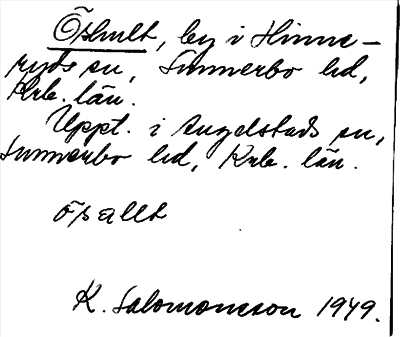 Öshult, by i Hinne-
ryds sn, Sunnerbo hd,
Krb. län.
Uppt. i Angelstads sn,
Sunnerbo hd, Krb. län.
ösallt
K. Salomonsson 1949.